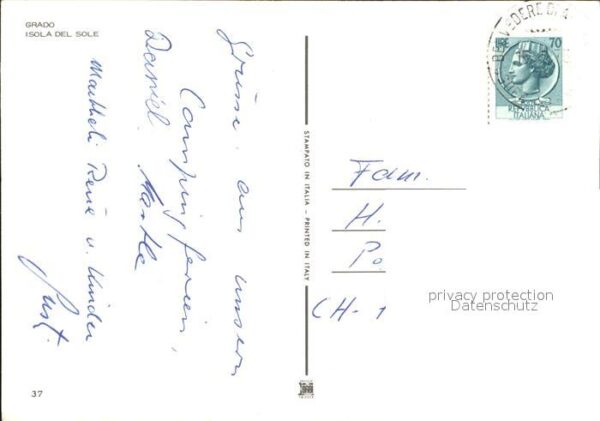 GRADO
ISOLA DEL SOLE
Grüsse aus unsern
Campingferien,
Daniel. Martha
Martheli René u. Kinder
Gusti
37
STAMPATO IN ITALIA - PRINTED IN ITALY
BELVEDERE DI
70
REPUBBLICA
ITALIANA
Fam.
H.
Po
CH-1
privacy protection
Datenschutz